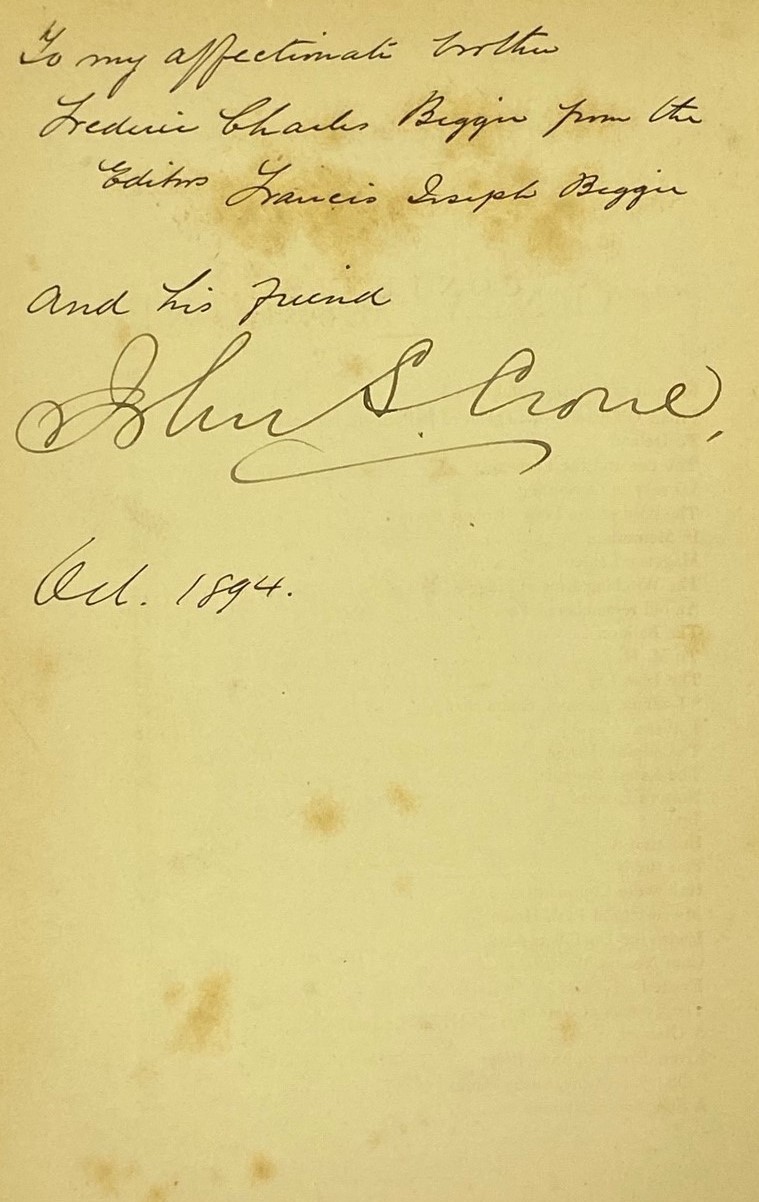 To my affectionate brother
Frederic Charles Bigger from the
Editors Francis Joseph Bigger
and his friend
John S. Crone,
Oct. 1894.